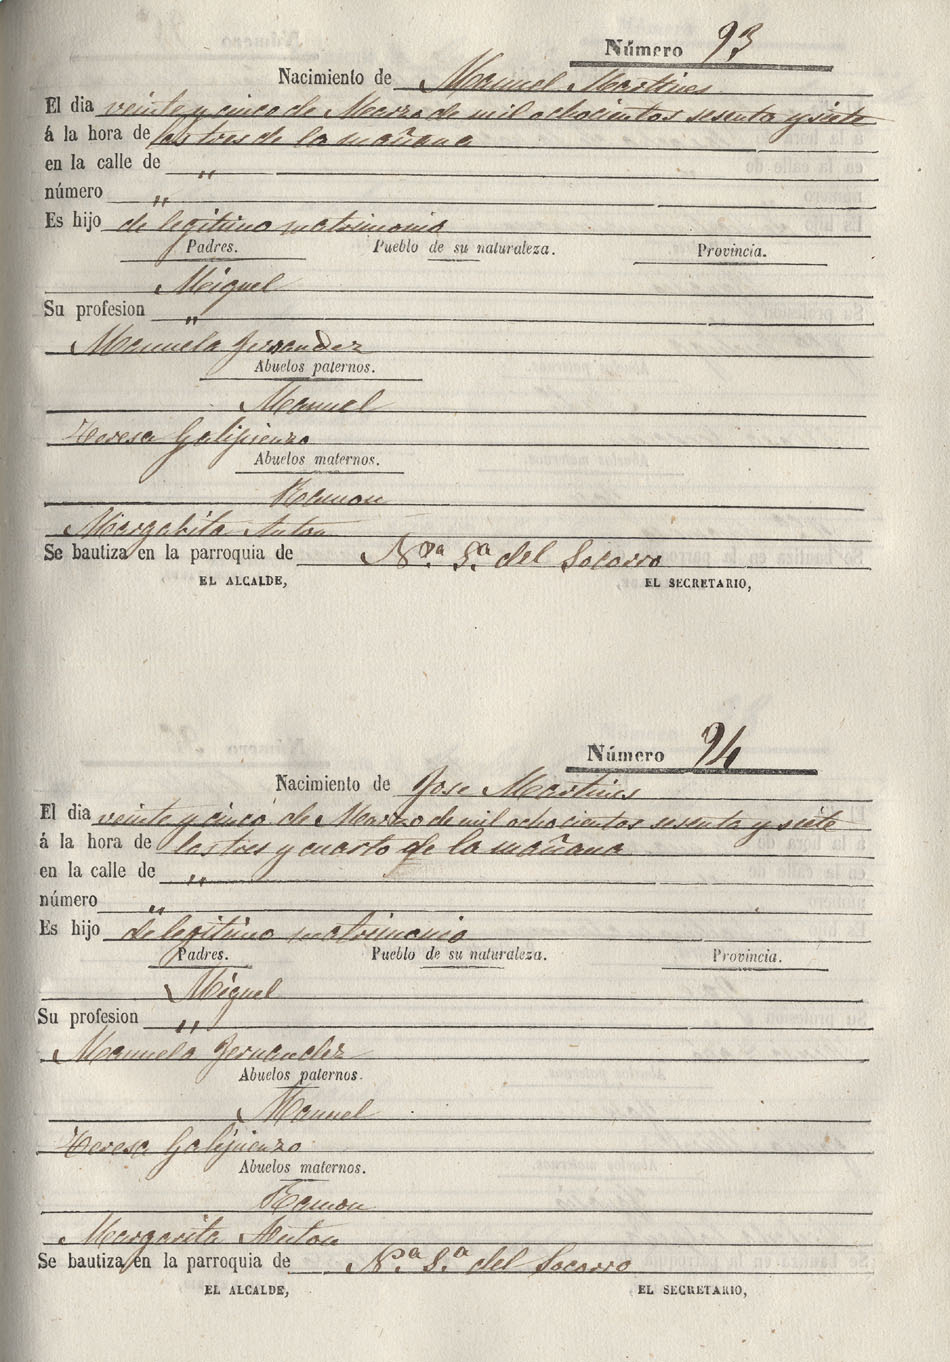 Número 93
Nacimiento de Manuel Martines
El dia veinte y cinco de Marzo de mil ochocientos sesenta y siete
á la hora de las tres de la mañana
en la calle de "
número "
Es hijo de legitimo matrimonio
Padres. Pueblo de su naturaleza. Provincia.
Miguel
Su profesion "
Manuela Fernandez
Abuelos paternos.
Manuel
Teresa Galipienzo
Abuelos maternos.
Ramon
Margarita Anton
Se bautiza en la parroquia de Nra. Sa. del Socorro
EL ALCALDE, EL SECRETARIO,
Número 94
Nacimiento de Jose Martines
El dia veinte y cinco de Marzo de mil ochocientos sesenta y siete
á la hora de las tres y cuarto de la mañana
en la calle de "
número "
Es hijo de legitimo matrimonio
Padres. Pueblo de su naturaleza. Provincia.
Miguel
Su profesion "
Manuela Fernandez
Abuelos paternos.
Manuel
Teresa Galipienzo
Abuelos maternos.
Ramon
Margarita Anton
Se bautiza en la parroquia de Nra. Sa. del Socorro
EL ALCALDE, EL SECRETARIO,